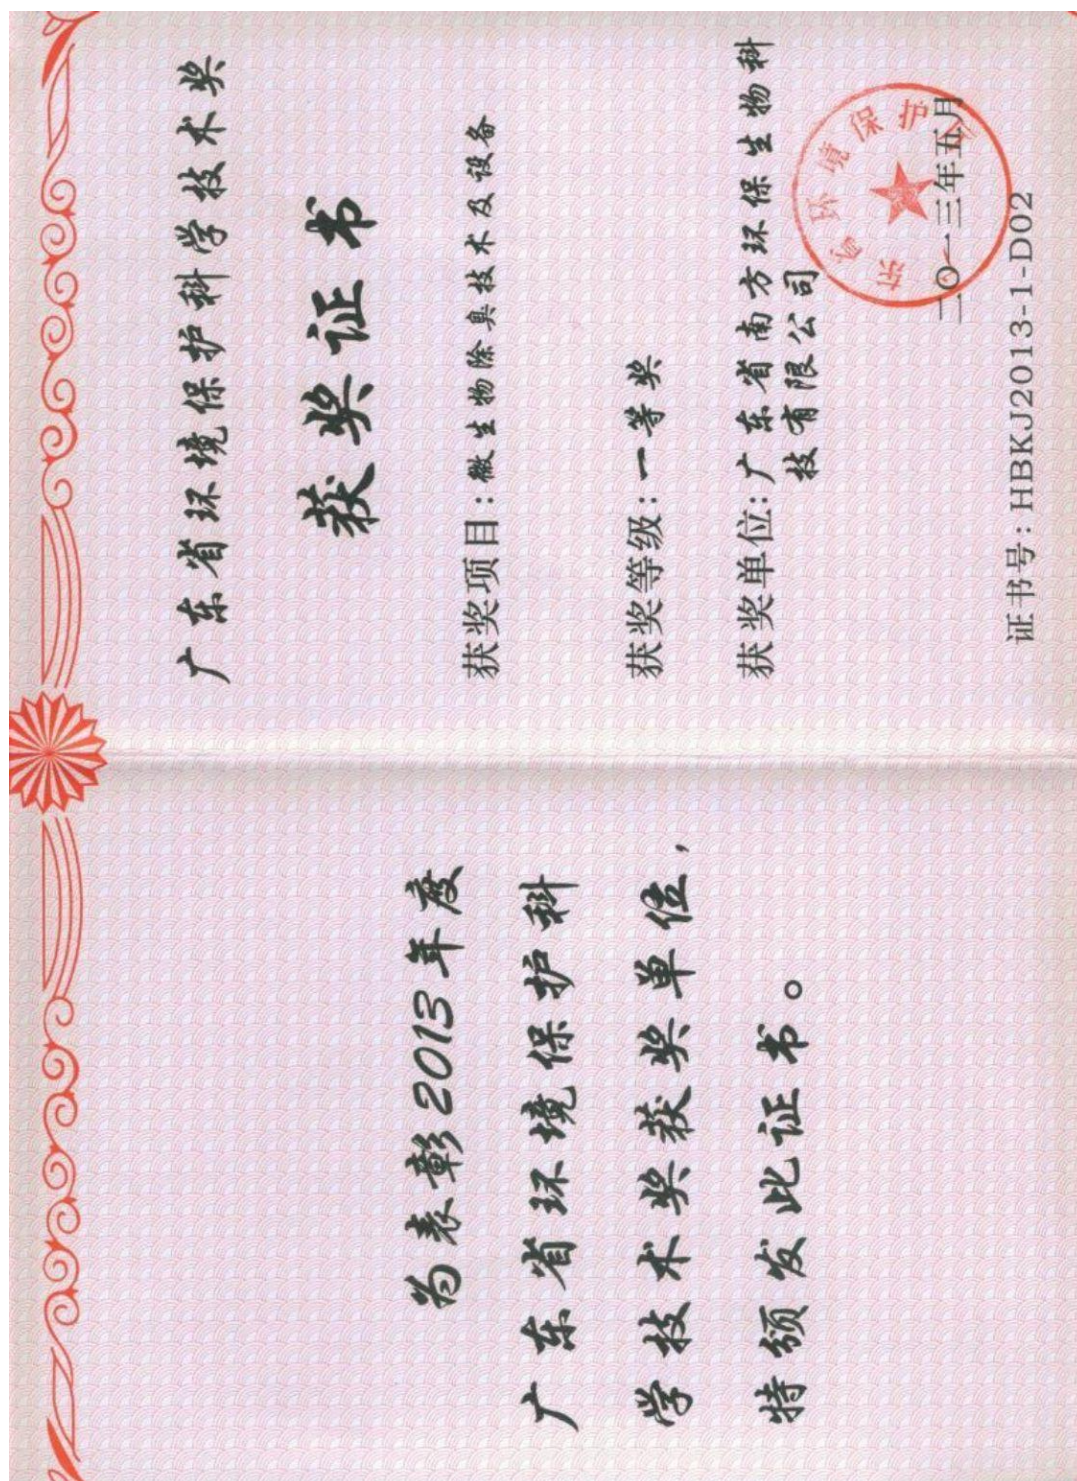 为表彰2013年度
广东省环境保护科
学技术奖获奖单位，
特颁发此证书。
广东省环境保护科学技术奖
获奖证书
获奖项目：微生物除臭技术及设备
获奖等级：一等奖
获奖单位：广东省南方环保生物科
技有限公司
二〇一三年五月
证书号：HBKJ2013-1-D02
东省环境保护